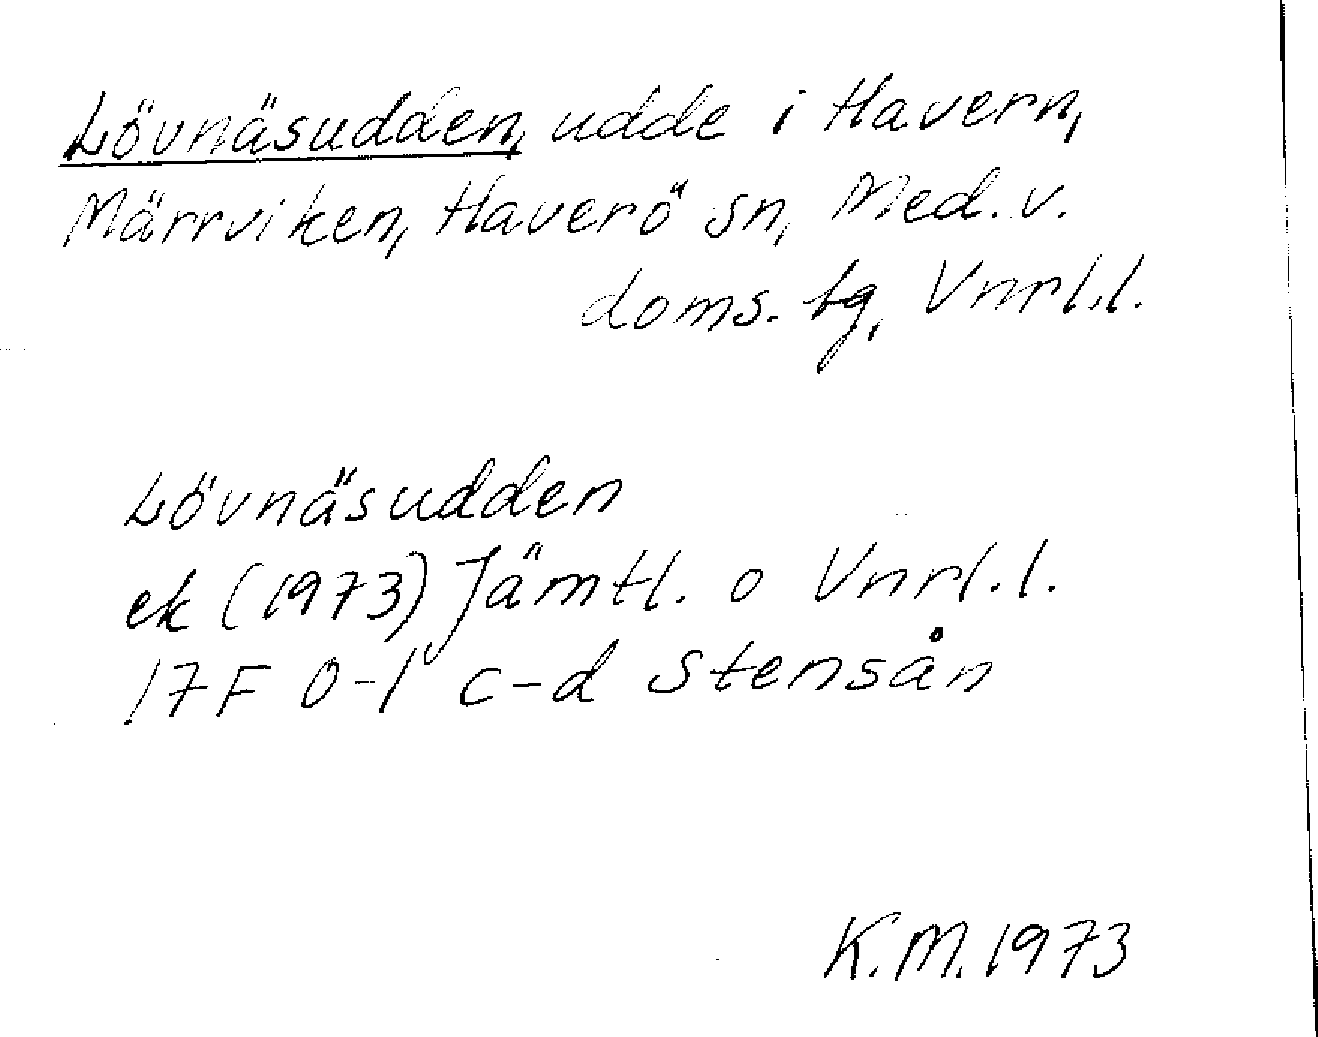 Lövnäsudden, udde i Havern,
Märrviken, Haverö sn, Med. v.
doms. tg, Vnrl.l.
Lövnäsudden
ek (1973) Jämtl. o Vnrl.l.
17F 0-1 c-d Stensån
K.M. 1973